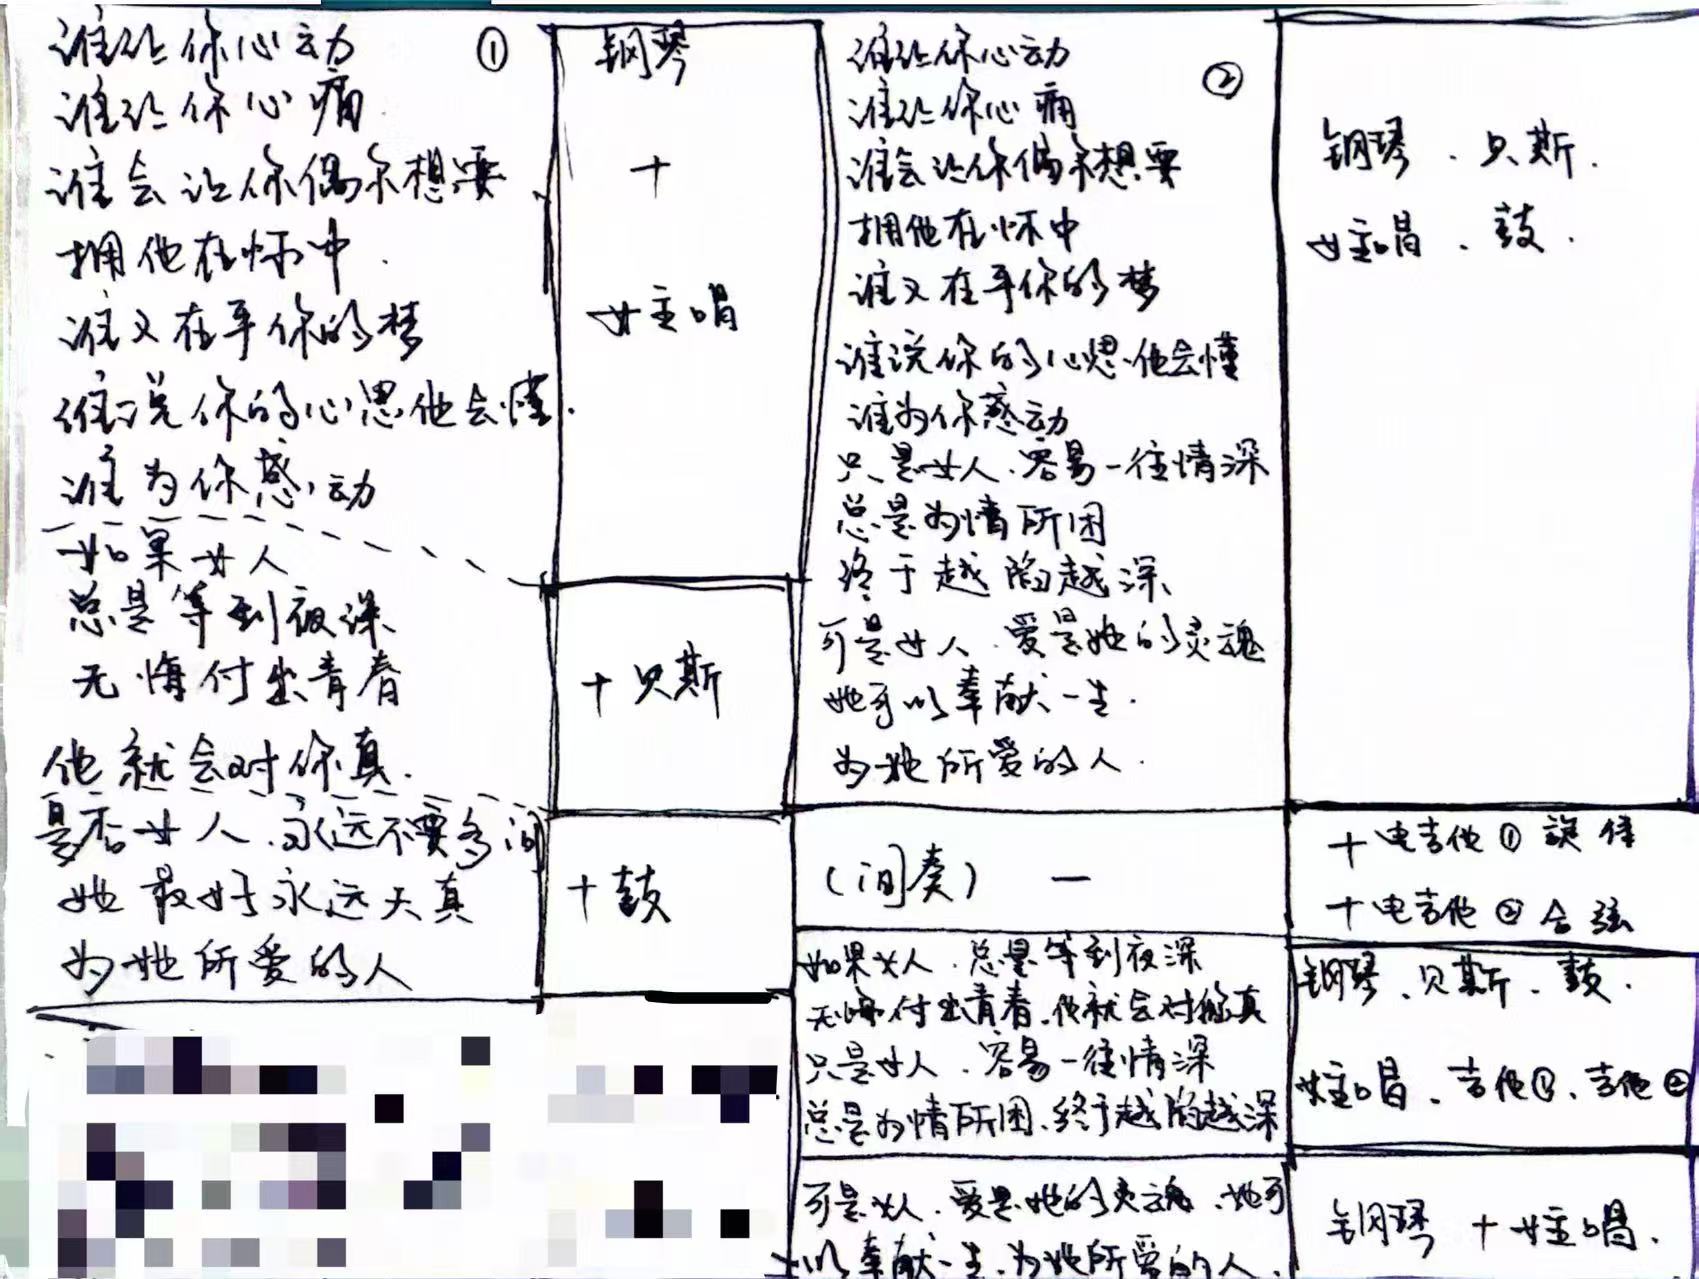 谁让你心动
①
谁让你心痛
谁会让你偶尔想要
拥他在怀中
谁又在乎你的梦
谁说你的心思他会懂
谁为你感动
如果女人
总是等到夜深
无悔付出青春
他就会对你真
是否女人、永远不要多问
她最好永远天真
为她所爱的人
钢琴
+
女主唱
+贝斯
+鼓
谁让你心动
②
谁让你心痛
谁会让你偶尔想要
拥他在怀中
谁又在乎你的梦
谁说你的心思他会懂
谁为你感动
只是女人、容易一往情深
总是为情所困
终于越陷越深
可是女人、爱是她的灵魂
她可以奉献一生
为她所爱的人
钢琴、贝斯
女主唱、鼓
(间奏) —
+电吉他①旋律
+电吉他②合弦
如果女人、总是等到夜深
无悔付出青春、他就会对你真
只是女人、容易一往情深
总是为情所困、终于越陷越深
钢琴、贝斯、鼓
女主唱、吉他①、吉他②
可是女人、爱是她的灵魂、她可
以奉献一生、为她所爱的人
钢琴+女主唱